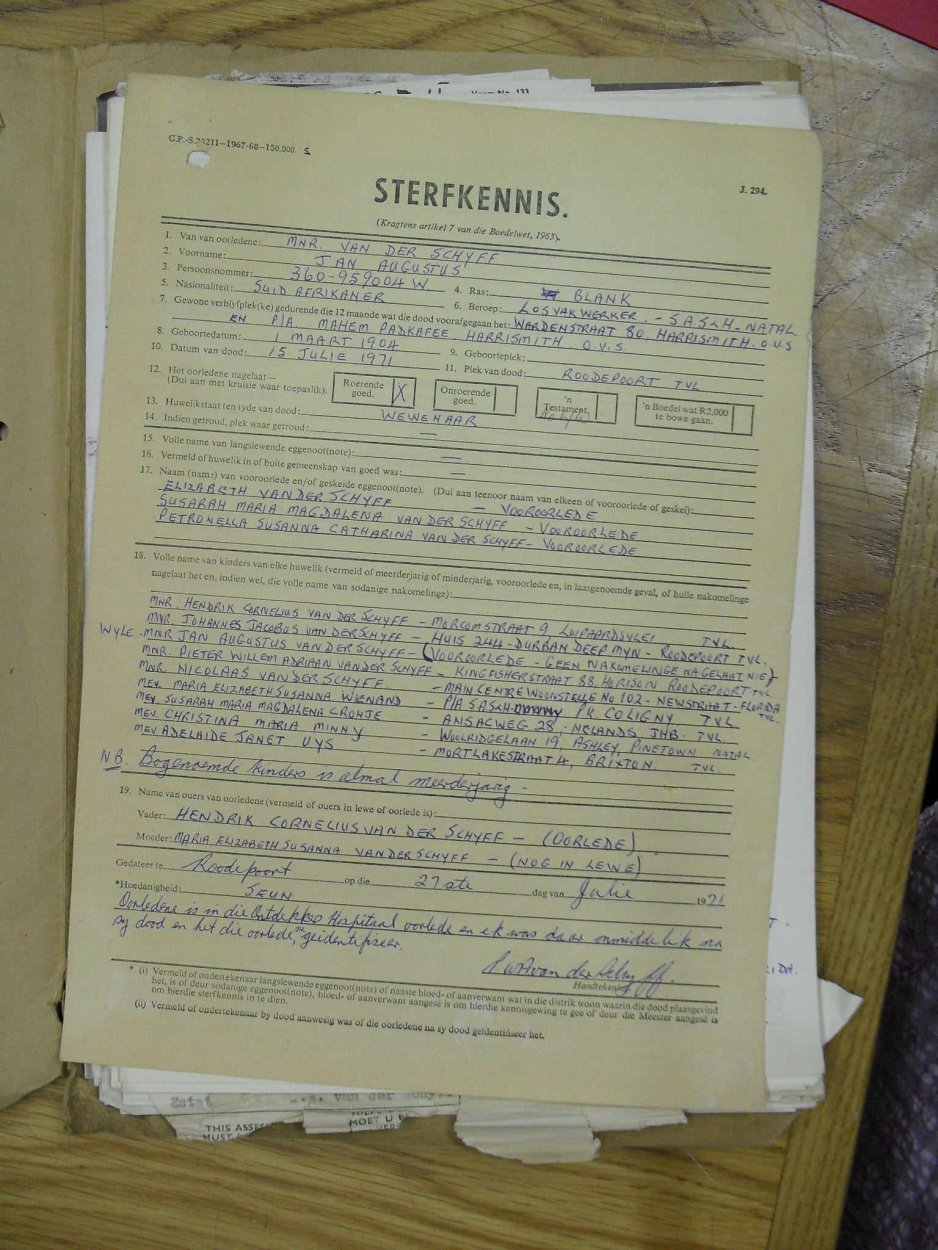 G.P.-S.23211-1967-68-150,000. S.
J. 294.
STERFKENNIS.
(Kragtens artikel 7 van die Boedelwet, 1965).
1. Van van oorledene: MNR. VAN DER SCHYFF
2. Voorname: JAN AUGUSTUS
3. Persoonsnommer: 360-959004 W 4. Ras: BLANK
5. Nasionaliteit: SUID AFRIKANER 6. Beroep: LOSVAKWERKER. - SAS&H-NATAL
7. Gewone verblyfplek(ke) gedurende die 12 maande wat die dood voorafgegaan het: WARDENSTRAAT 80, HARRISMITH. O.V.S
EN P/A. MAHEM PADKAFEE HARRISMITH O.V.S.
8. Geboortedatum: 1 MAART 1904 9. Geboorteplek:
10. Datum van dood: 15 JULIE 1971 11. Plek van dood: ROODEPOORT TVL
12. Het oorledene nagelaat—
(Dui aan met kruisie waar toepaslik).
Roerende goed. X
Onroerende goed.
'n Testament.
'n Boedel wat R2,000 te bowe gaan.
13. Huwelikstaat ten tyde van dood: WEWENAAR
14. Indien getroud, plek waar getroud: —
15. Volle name van langslewende eggenoot(note): —
16. Vermeld of huwelik in of buite gemeenskap van goed was: —
17. Naam (name) van vooroorlede en/of geskeide eggenoot(note). (Dui aan teenoor naam van elkeen of vooroorlede of geskei):
ELIZABETH VAN DER SCHYFF — VOOROORLEDE
SUSARAH MARIA MAGDALENA VAN DER SCHYFF — VOOROORLEDE
PETRONELLA SUSANNA CATHARINA VAN DER SCHYFF- VOOROORLEDE
18. Volle name van kinders van elke huwelik (vermeld of meerderjarig of minderjarig, vooroorlede en, in laasgenoemde geval, of hulle nakomelinge
nagelaat het en, indien wel, die volle name van sodanige nakomelinge):
MNR. HENDRIK CORNELIUS VAN DER SCHYFF - MORCOMSTRAAT 9 LUIPAARDSVLEI TVL.
MNR. JOHANNES JACOBUS VAN DER SCHYFF - HUIS 244 - DURBAN DEEP MYN - ROODEPOORT TVL.
WYLE - MNR JAN AUGUSTUS VAN DER SCHYFF - (VOOROORLEDE - GEEN NAKOMELINGE NAGELAAT NIE)
MNR. PIETER WILLEM ADRIAAN VAN DER SCHYFF - KINGFISHERSTRAAT 88. HORISON ROODEPOORT TVL
MNR. NICOLAAS VAN DER SCHYFF - MAIN CENTRE WOONSTELLE No 102 - NEWSTRAAT - FLORIDA TVL.
MEV. MARIA ELIZABETH SUSANNA WIENAND - P/A SAS&H P.K. COLIGNY TVL
MEV. SUSARAH MARIA MAGDALENA CRONJE - ANSACWEG 28, NELANDS JHB. TVL.
MEV. CHRISTINA MARIA MINNY - WOOLRIDGELAAN 19, ASHLEY, PINETOWN - NATAL
MEV ADELAIDE JANET UYS - MORTLAKESTRAAT 4, BRIXTON TVL.
N.B. Bogenoemde kinders is almal meerderjarig.
19. Name van ouers van oorledene (vermeld of ouers in lewe of oorlede is):
Vader: HENDRIK CORNELIUS VAN DER SCHYFF — (OORLEDE)
Moeder: MARIA ELIZABETH SUSANNA VAN DER SCHYFF — (NOG IN LEWE)
Gedateer te Roodepoort op die 27ste dag van Julie 1971
*Hoedanigheid: SEUN
Oorledene is in die Ontdekkers Hospitaal oorlede en ek was daar onmiddelik na
sy dood en het die oorledene geidentifiseer.
Handtekening.
* (i) Vermeld of ondertekenaar langslewende eggenoot(note) of naaste bloed- of aanverwant wat in die distrik woon waarin die dood plaasgevind
het, is of deur sodanige eggenoot(note), bloed- of aanverwant aangesê is om hierdie kennisgewing te gee of deur die Meester aangesê is
om hierdie sterfkennis in te dien.
(ii) Vermeld of ondertekenaar by dood aanwesig was of die oorledene na sy dood geïdentifiseer het.
THIS ASSE
MUST
MOET U B